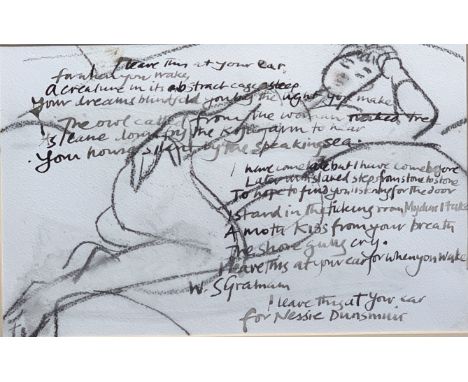 I leave this at your ear
for when you wake,
A creature in its abstract cage asleep
Your dreams blindfold you by the light they make
The owl called from the woman naked tree
As I came down by the Kyle farm to hear
Your house silent by the speaking sea.
I have come late but I have come before
Later with slaked steps from stone to stone
To hope to find you listening for the door
I stand in the ticking room. My dear I take
A moth kiss from your breath
The shore gulls cry.
I leave this at your ear for when you wake
W.S Graham
I leave this at your ear
for Nessie Dunsmuir